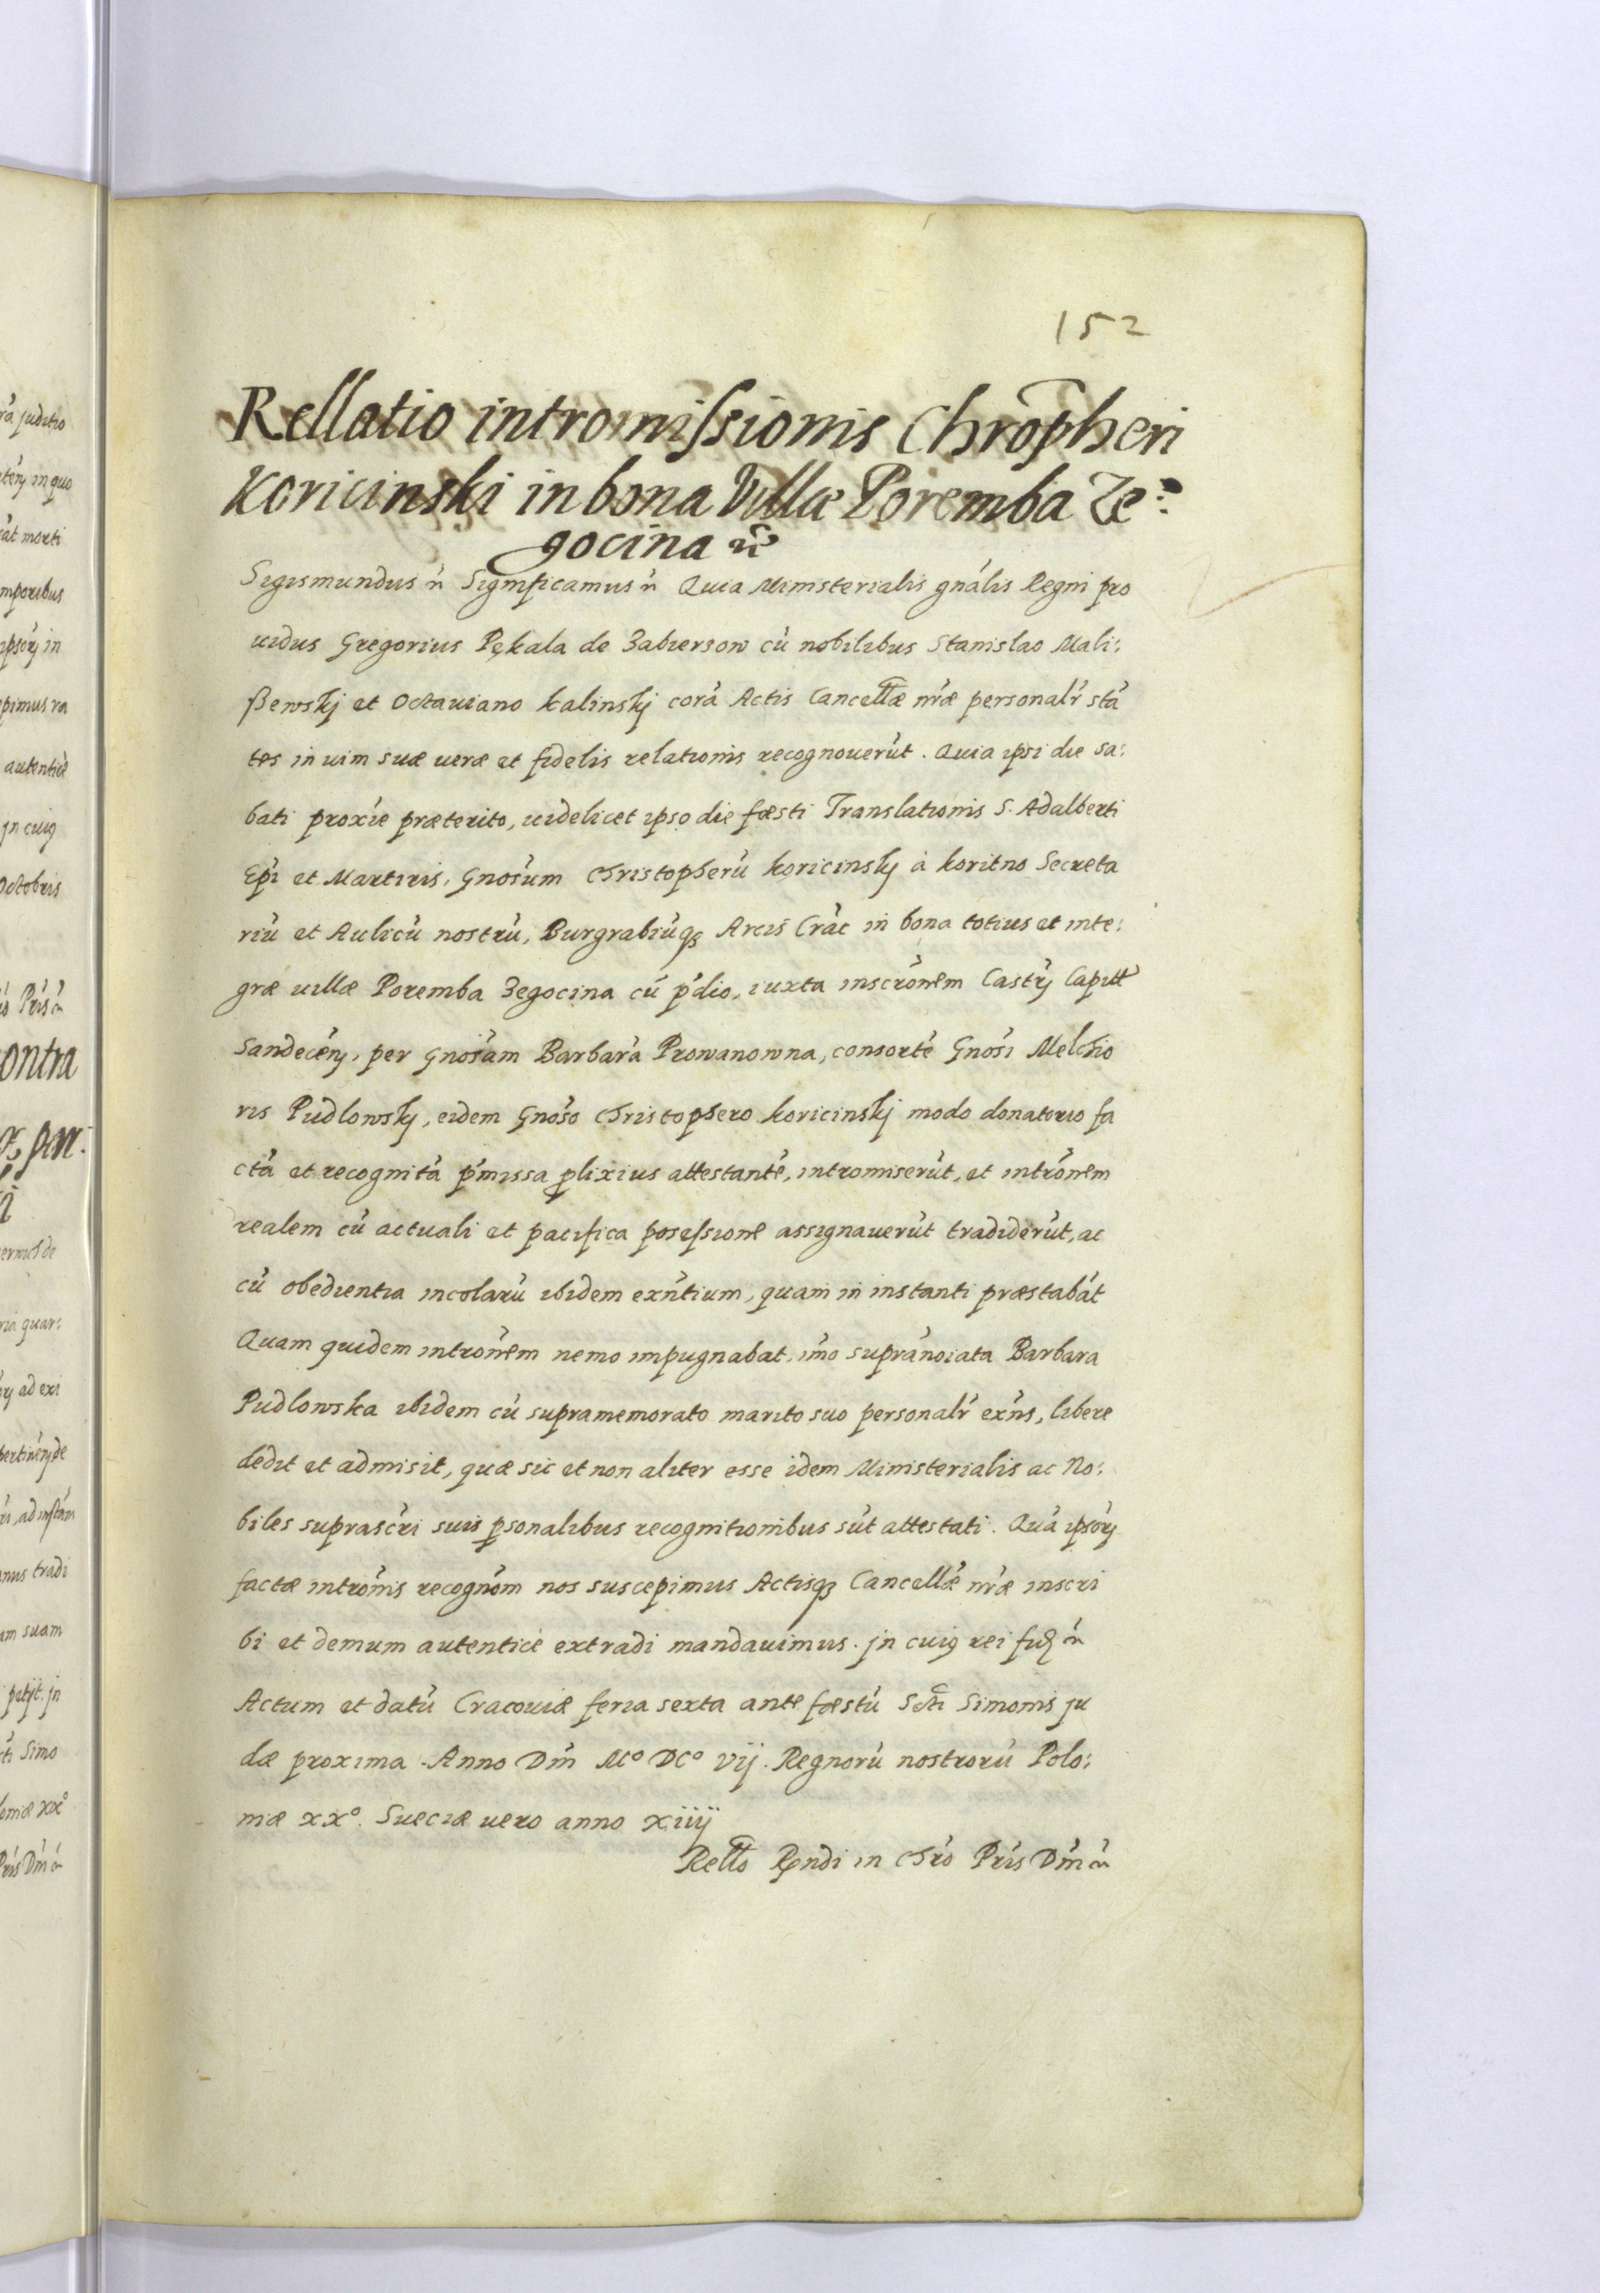 152
Rellatio intromissionis Chrõpheri
Koricinski in bona Villæ Poremba Ze:
gocina ẽ
Sigismundus ẽ Significamus ẽ Quia Ministerialis gnãlis Regni pro
uidus Gregorius Pękala de Zabierzow cũ nobilibus Stanislao Mali:
ßewskj et Octauiano Kalinskj corã Actis Cancellæ nrǣ personalr̃ stã
tes in uim suæ ueræ et fidelis relationis recognouerũt. Quia ipsi die sa:
bati proxĩe præterito, uidelicet ipso die fæsti Translationis S. Adalberti
Epĩ et Martiris, Gnosũm Christopherũ Koricinskj à Koritno Secreta
riũ et Aulicũ nostrũ, Burgrabiũq̃ Arcis Crac̃ in bona totius et inte:
græ uillæ Poremba Zegocina cũ p̃dio, iuxta inscrõnem Castr̃ Capitl̃
Sandecen̄, per Gnosãm Barbarã Prowanowna, consortẽ Gnosĩ Melchio
ris Pudlowskj, eidem Gnosõ Christophero Koricinskj modo donatorio fa
ctã et recognitã p̃missa p̱lixius attestantẽ, intromiserũt, et intrõnem
realem cũ actuali et pacifica posessionẽ assignauerũt tradiderũt, ac
cũ obedientia incolarũ ibidem exñtium, quam in instanti præstabãt
Quam quidem intrõnem nemo impugnabat, im̃o supranoĩata Barbara
Pudlowska ibidem cũ supramemorato marito suo personalr̃ exñs, libere
dedit et admisit, quæ sic et non aliter esse idem Ministerialis ac No:
biles suprascr̃i suis p̱sonalibus recognitionibus sũt attestati. Quã ipsoꝝ
factæ intrõnis recognõm nos suscepimus Actisq̃ Cancellæ̃ nrǣ inscri
bi et demum autenticè extradi mandauimus. Jn cuiꝯ rei fid̃ ẽ
Actum et datũ Cracouiæ feria sexta ante fæstũ Sctĩ Simonis Ju
dæ proxima. Anno Dñi Mº DCº Vij. Regnorũ nostrorũ Polo:
niæ XXº. Sueciæ uero anno Xiiij
Rellõ Rñdi in Chrõ Prĩs Dñi ẽ